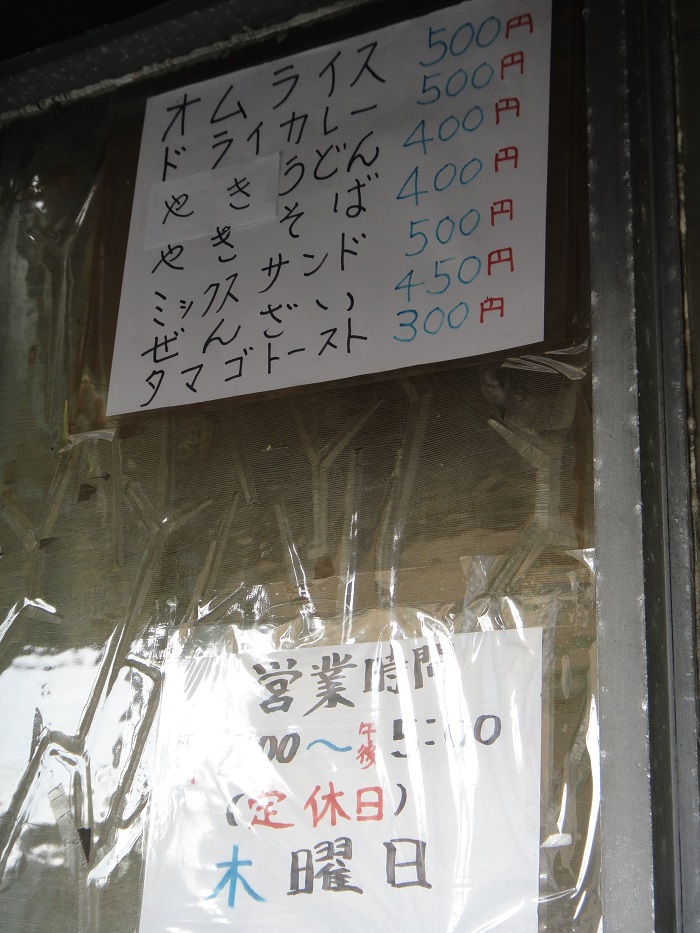 オムライス 500円
ドライカレー 500円
やきうどん 400円
やきそば 400円
ミックスサンド 500円
ぜんざい 450円
タマゴトースト 300円
営業時間
00〜午後5:00
(定休日)
木曜日